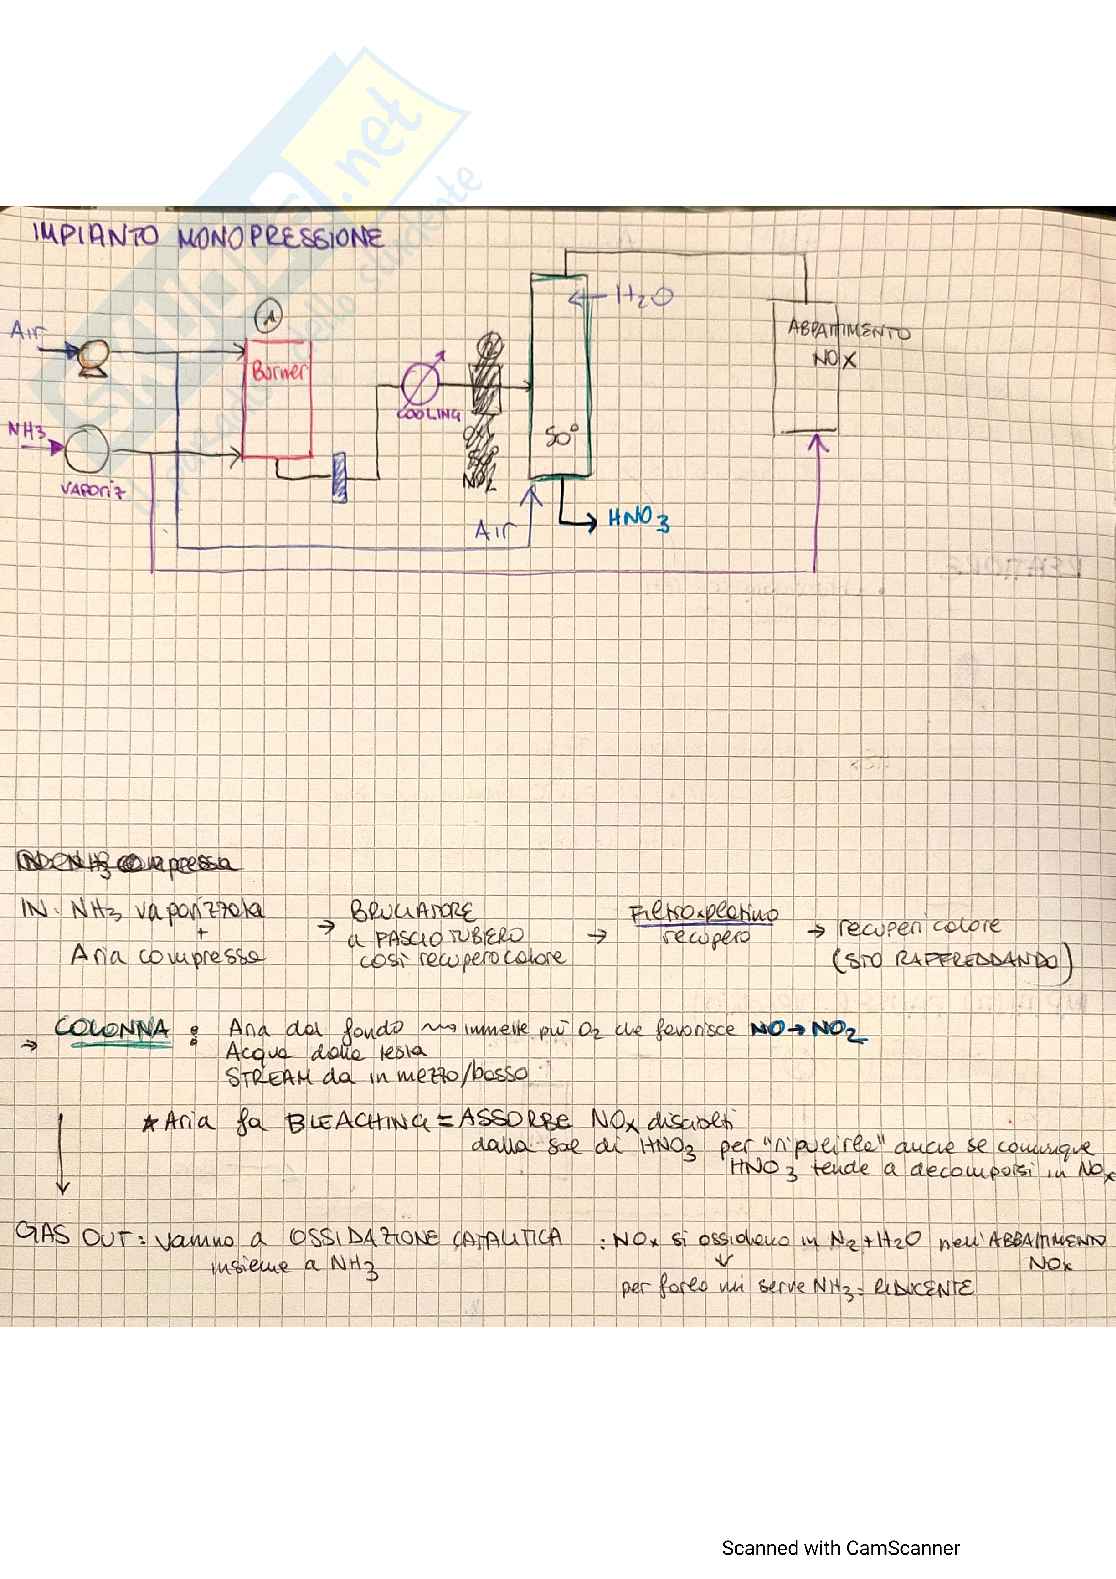 IMPIANTO MONOPRESSIONE
Air
NH3
VAPORIZ
1
Burner
COOLING
H2O
50°
Air
HNO3
ABBATTIMENTO
NOX
IN: NH3 vaporizzata
+
Aria compressa
→ BRUCIATORE
a FASCIO TUBIERO
così recupero calore
→ Filtro x platino
recupero
→ recuperi calore
(STO RAFFREDDANDO)
→ COLONNA : Aria dal fondo ⇝ immette più O2 che favorisce NO→NO2
Acqua dalla testa
STREAM da in mezzo/basso
* Aria fa BLEACHING = ASSORBE NOx disciolti
dalla sol di HNO3 per "ripulirla" anche se comunque
HNO3 tende a decomporsi in NOx
GAS OUT: vanno a OSSIDAZIONE CATALITICA : NOx si ossidano in N2+H2O nell'ABBATTIMENTO
insieme a NH3
NOx
per farlo mi serve NH3 = RIDUCENTE
skuola.net
il paradiso dello studente
Scanned with CamScanner